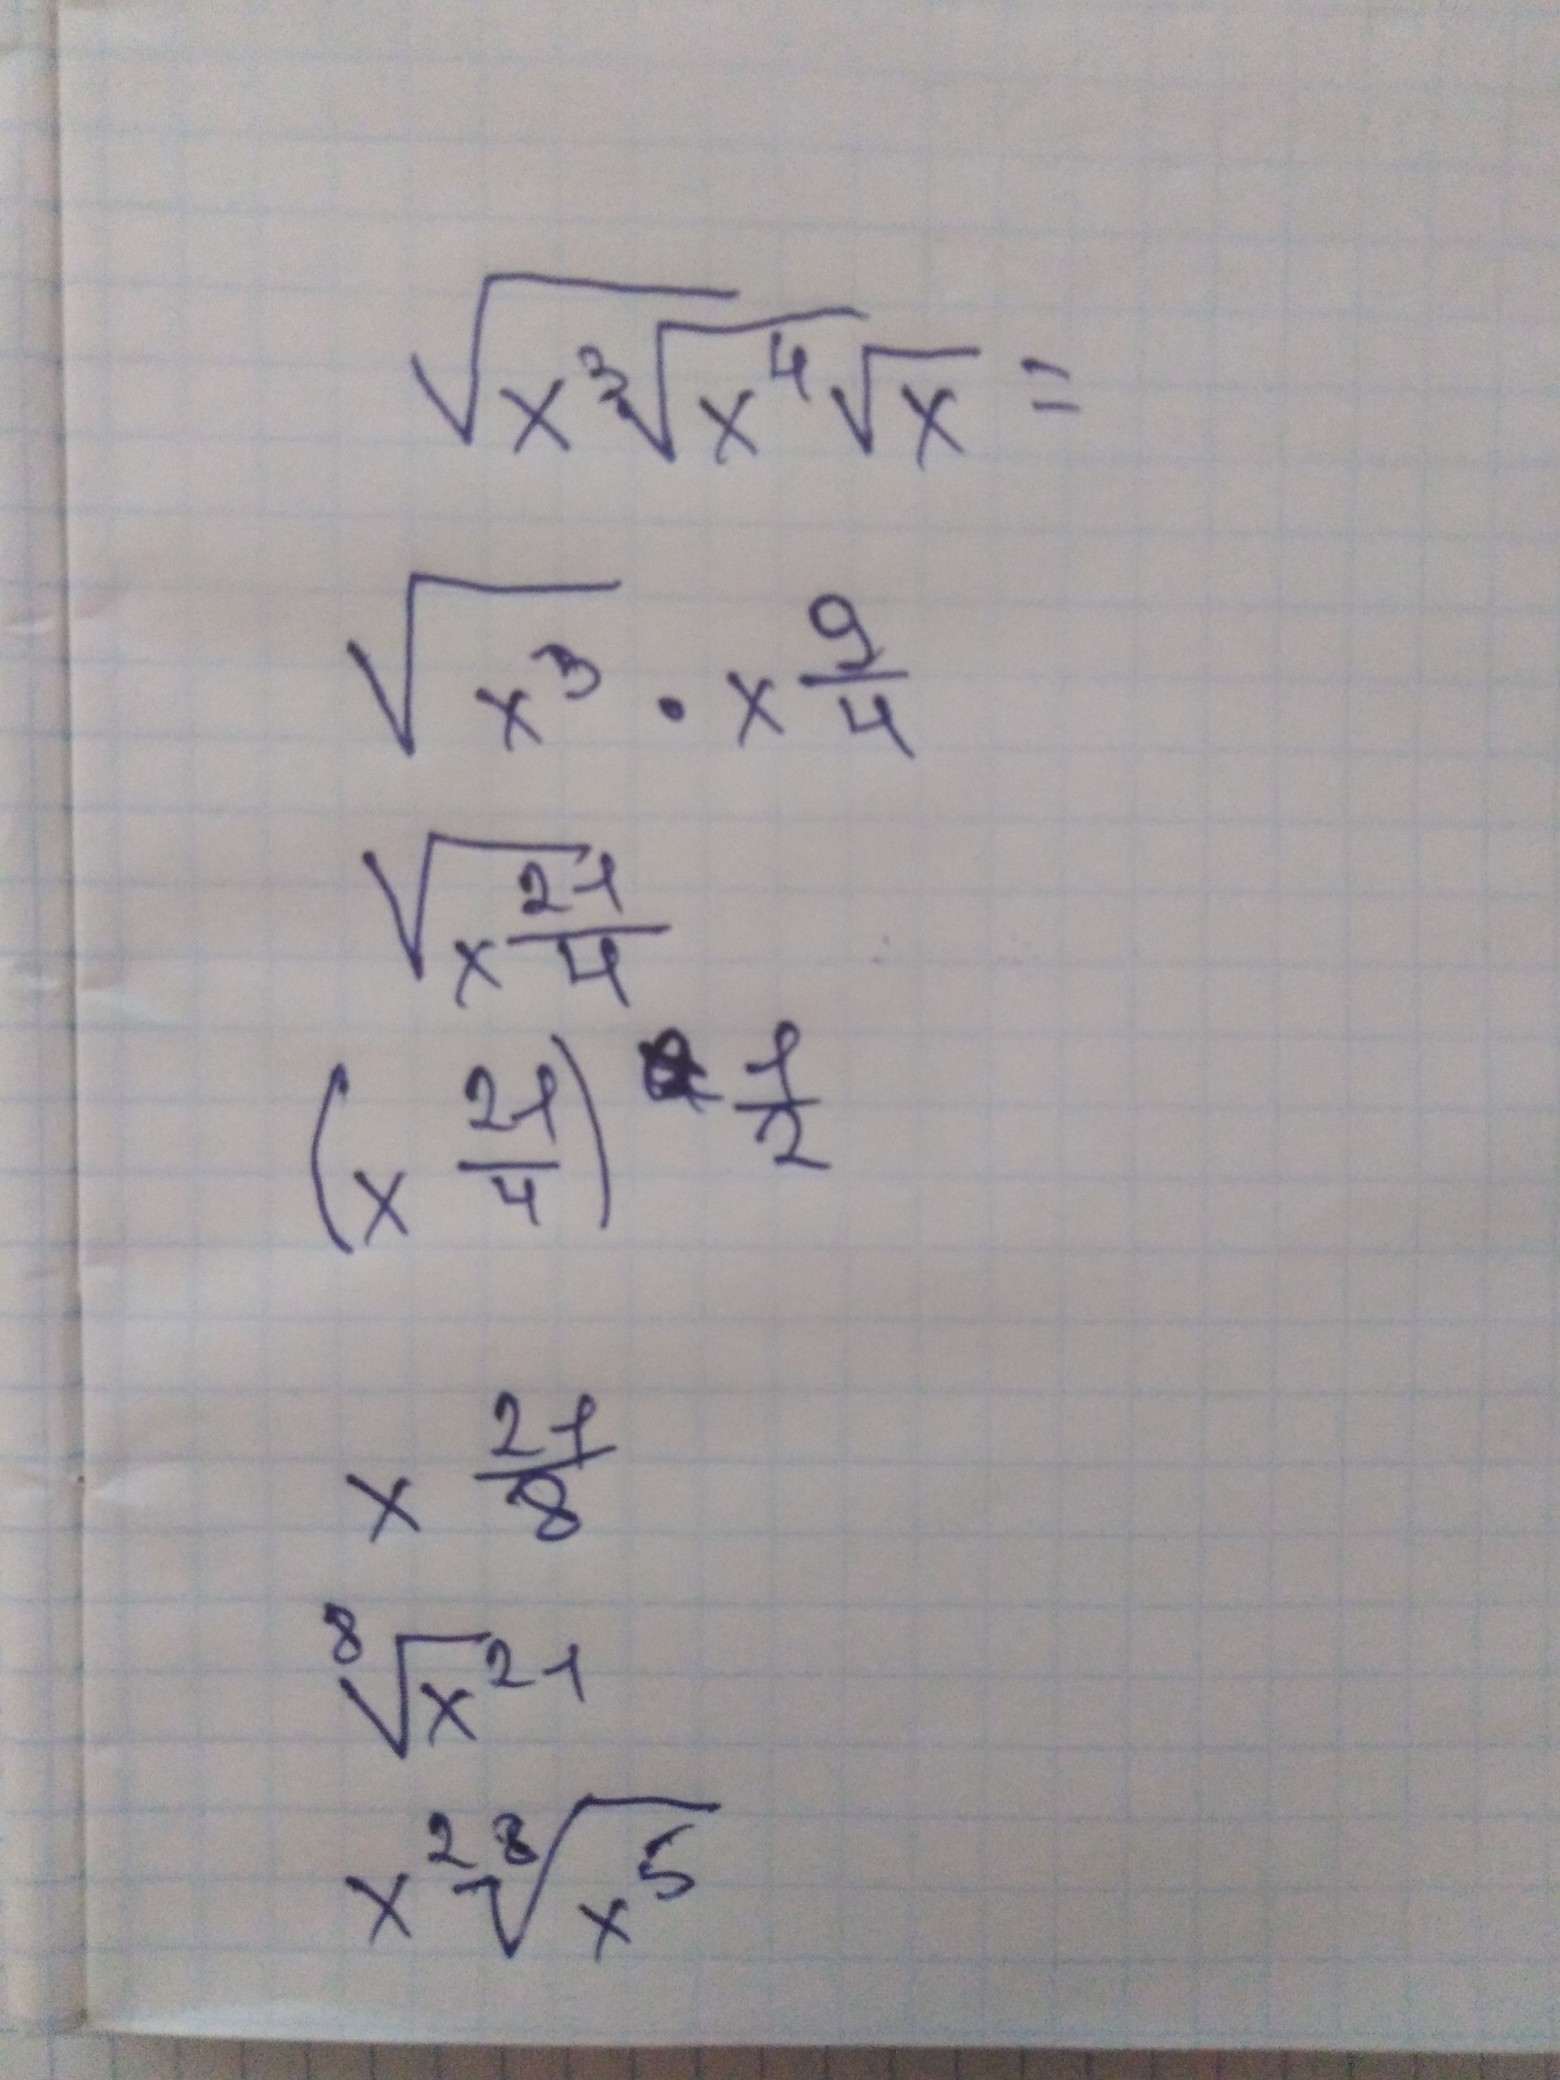 √x³√x⁴√x =
√x³ · x^(9/4)
√x^(21/4)
(x^(21/4))^(1/2)
x^(21/8)
⁸√x²¹
x² ⁸√x⁵